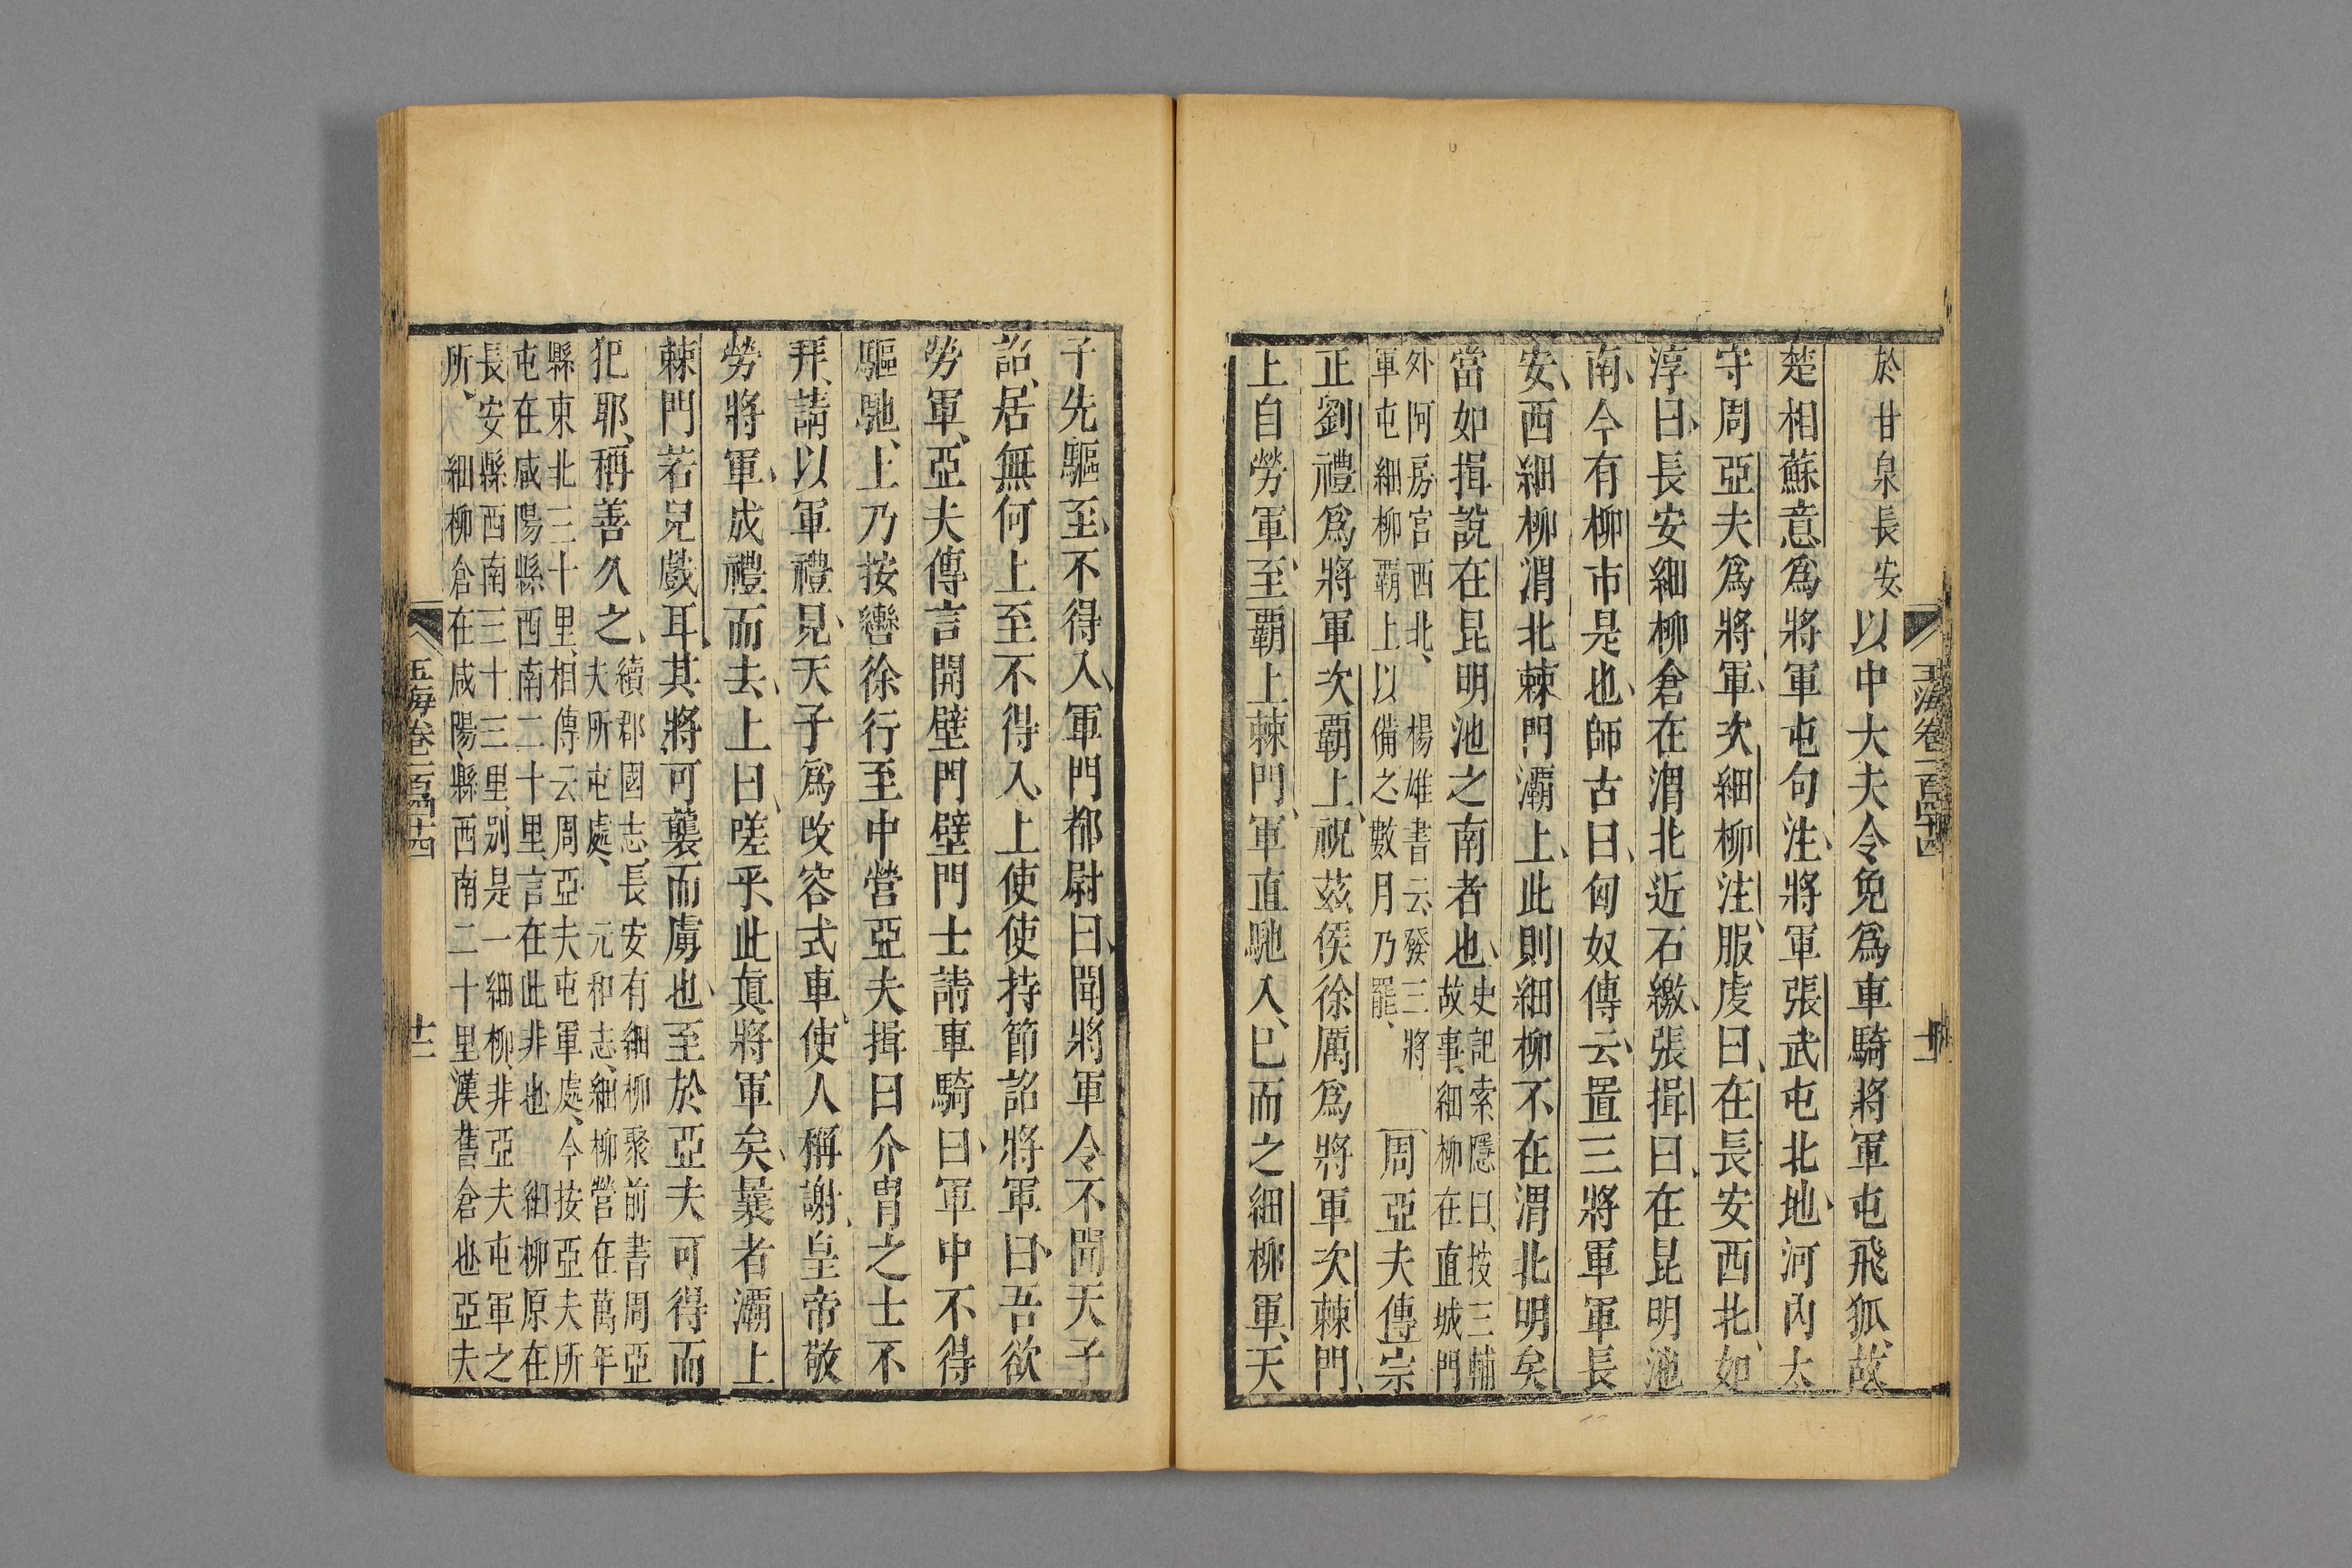 玉海卷一百四十四
十一
於甘泉長安、以中大夫令免爲車騎將軍屯飛狐、故
楚相蘇意爲將軍屯句注、將軍張武屯北地、河内太
守周亞夫爲將軍、次細柳注、服虔曰、在長安西北、如
淳曰、長安細柳倉在渭北近石繳、張揖曰、在昆明池
南、今有柳市是也、師古曰、匈奴傳云、置三將軍軍長
安、西細柳渭北棘門灞上、此則細柳不在渭北明矣
當如揖說在昆明池之南者也、史記索隱曰、按三輔
故事、細柳在直城門
外阿房宫西北、楊雄書云、發三將
軍屯細柳覇上以備之、數月乃罷、周亞夫傳宗
正劉禮爲將軍次覇上、祝兹侯徐厲爲將軍次棘門、
上自勞軍、至覇上棘門、軍直馳入、巳而之細柳軍、天
子先驅至、不得入、軍門都尉曰、聞將軍令不聞天子
詔、居無何上至不得入、上使使持節詔將軍曰、吾欲
勞軍、亞夫傳言開壁門壁門士請車騎曰、軍中不得
驅馳、上乃按轡徐行至中營亞夫揖曰介胄之士不
拜、請以軍禮見、天子爲改容式車、使人稱謝、皇帝敬
勞將軍、成禮而去、上曰、嗟乎、此眞將軍矣、曩者灞上
棘門若兒戯耳、其將可襲而虜也、至於亞夫可得而
犯耶、稱善久之、續郡國志、長安有細柳聚前書周亞
夫所屯處、元和志、細柳營在萬年
縣東北三十里、相傳云周亞夫屯軍處、今按亞夫所
屯在咸陽縣西南二十里、言在此非也細柳原在
長安縣西南三十三里、別是一細柳、非亞夫屯軍之
所、細柳倉在咸陽縣西南二十里漢舊倉也亞夫
玉海卷一百四十四
十二